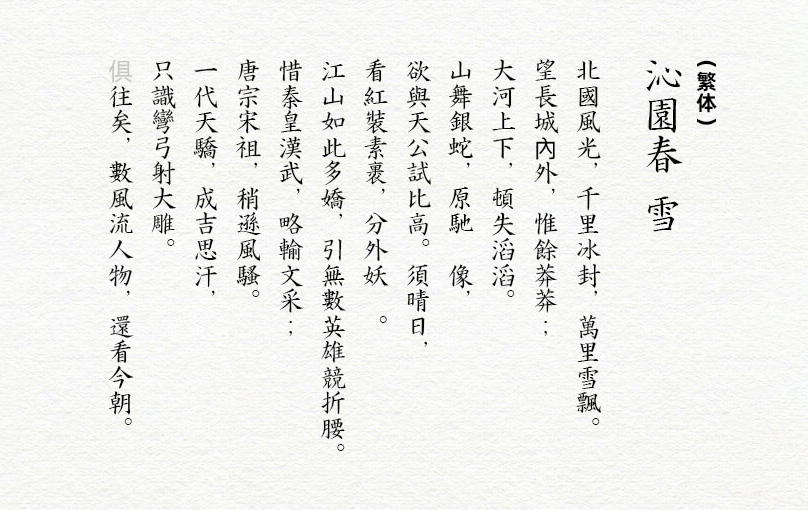 （繁体）
沁園春 雪
北國風光，千里冰封，萬里雪飄。
望長城內外，惟餘莽莽；
大河上下，頓失滔滔。
山舞銀蛇，原馳 像，
欲與天公試比高。須晴日，
看紅裝素裹，分外妖 。
江山如此多嬌，引無數英雄競折腰。
惜秦皇漢武，略輸文采；
唐宗宋祖，稍遜風騷。
一代天驕，成吉思汗，
只識彎弓射大雕。
俱往矣，數風流人物，還看今朝。